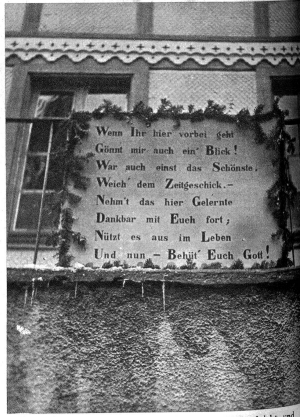 Wenn Ihr hier vorbei geht
Gönnt mir auch ein' Blick!
War auch einst das Schönste,
Weich dem Zeitgeschick.–
Nehm't das hier Gelernte
Dankbar mit Euch fort;
Nützt es aus im Leben
Und nun – Behüt' Euch Gott!
und